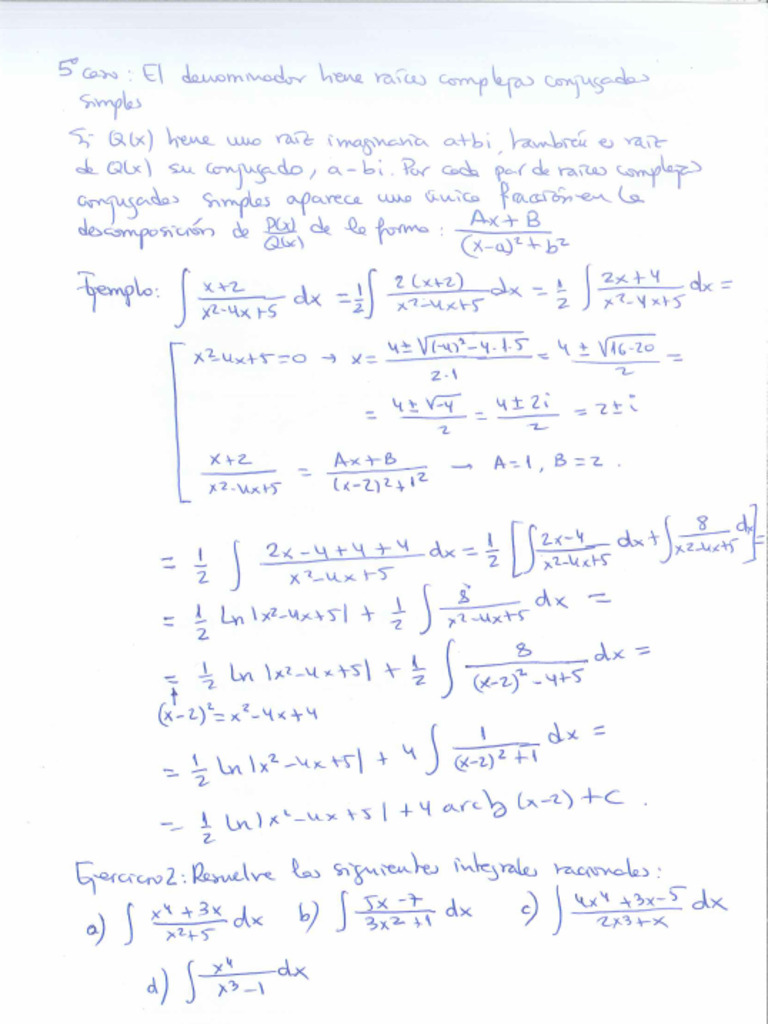 5º caso: El denominador tiene raíces complejas conjugadas
simples
Si Q(x) tiene una raíz imaginaria a+bi, también es raíz
de Q(x) su conjugado, a-bi. Por cada par de raíces complejas
conjugadas simples aparece una única fracción en la
descomposición de P(x)/Q(x) de la forma: (Ax+B)/((x-a)²+b²)
Ejemplo: ∫ (x+2)/(x²-4x+5) dx = 1/2 ∫ 2(x+2)/(x²-4x+5) dx = 1/2 ∫ (2x+4)/(x²-4x+5) dx =
x²-4x+5=0 → x = (4±√((-4)²-4·1·5))/(2·1) = (4±√(16-20))/2 =
= (4±√-4)/2 = (4±2i)/2 = 2±i
(x+2)/(x²-4x+5) = (Ax+B)/((x-2)²+1²) → A=1, B=2.
= 1/2 ∫ (2x-4+4+4)/(x²-4x+5) dx = 1/2 [∫ (2x-4)/(x²-4x+5) dx + ∫ 8/(x²-4x+5) dx] =
= 1/2 Ln |x²-4x+5| + 1/2 ∫ 8/(x²-4x+5) dx =
= 1/2 Ln |x²-4x+5| + 1/2 ∫ 8/((x-2)²-4+5) dx =
↑
(x-2)²=x²-4x+4
= 1/2 ln |x²-4x+5| + 4 ∫ 1/((x-2)²+1) dx =
= 1/2 Ln |x²-4x+5| + 4 arctg (x-2) + C.
Ejercicio 2: Resuelve las siguientes integrales racionales:
a) ∫ (x⁴+3x)/(x²+5) dx b) ∫ (5x-7)/(3x²+1) dx c) ∫ (4x⁴+3x-5)/(2x³+x) dx
d) ∫ x⁴/(x³-1) dx